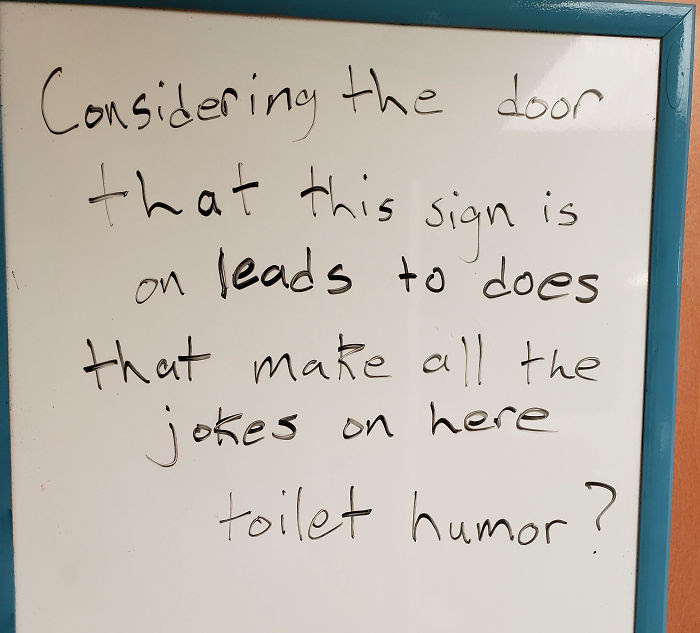 Considering the door
that this sign is
on leads to does
that make all the
jokes on here
toilet humor?